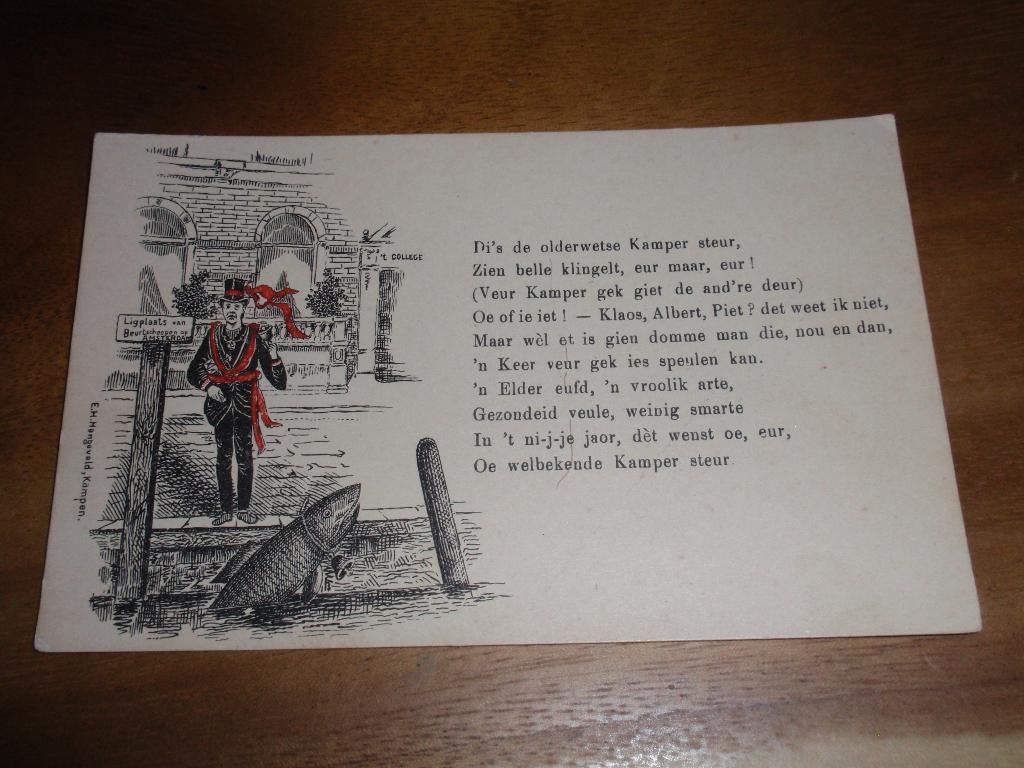 't COLLEGE
Ligplaats van
Beurtschepen op
AMSTERDAM
E.H.Hengeveld, Kampen.
Di's de olderwetse Kamper steur,
Zien belle klingelt, eur maar, eur!
(Veur Kamper gek giet de and're deur)
Oe of ie iet! — Klaos, Albert, Piet? det weet ik niet,
Maar wèl et is gien domme man die, nou en dan,
'n Keer veur gek ies speulen kan.
'n Elder eufd, 'n vroolik arte,
Gezondeid veule, weinig smarte
In 't ni-j-je jaor, dèt wenst oe, eur,
Oe welbekende Kamper steur.